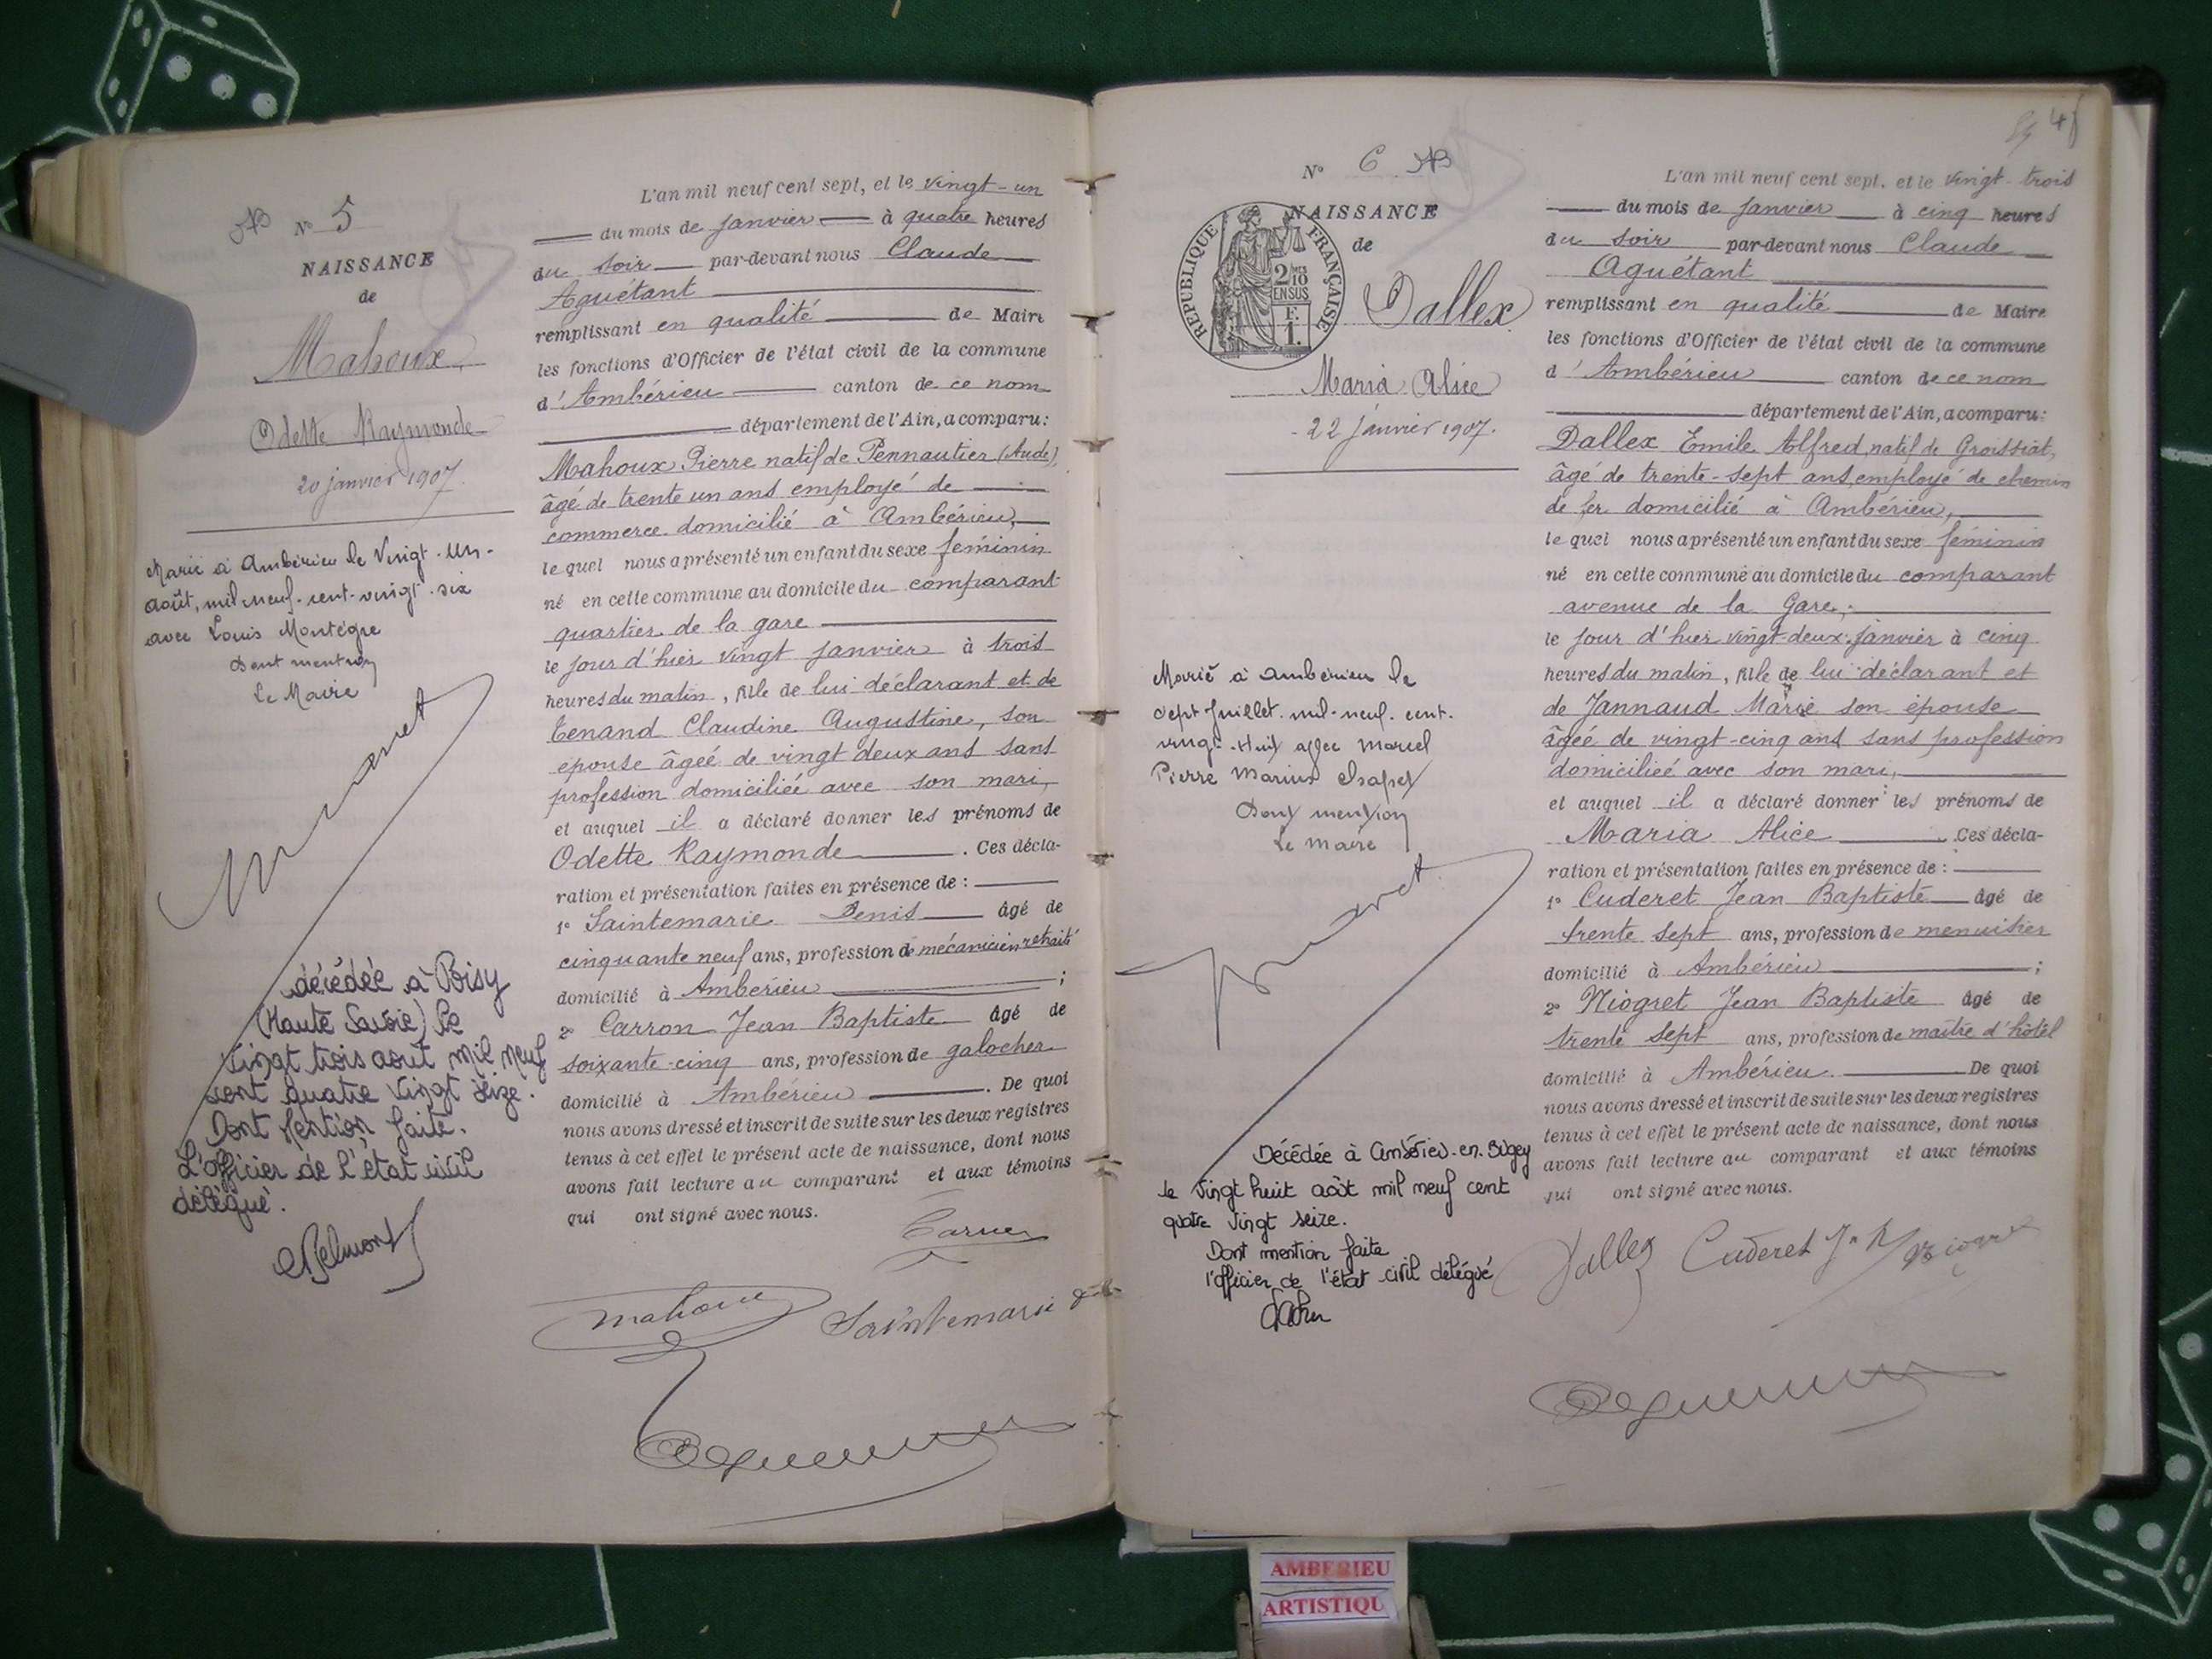 N° 5
NAISSANCE
de
Mahoux
Odette Raymonde
20 janvier 1907.
Marié à Ambérieu le Vingt-un-
août, mil neuf-cent-vingt-six
avec Louis Montègre
Dont mention
Le Maire
décédée à Poisy
(Haute Savoie) le
vingt trois aout mil neuf
cent quatre vingt seize.
Dont Mention faite.
L'officier de l'état civil
délégué.
L'an mil neuf cent sept, et le vingt-un
du mois de janvier à quatre heures
du soir par-devant nous Claude
Aguétant
remplissant en qualité de Maire
les fonctions d'Officier de l'état civil de la commune
d'Ambérieu canton de ce nom
département de l'Ain, a comparu:
Mahoux Pierre natif de Pennautier (Aude),
âgé de trente un ans employé de
commerce domicilié à Ambérieu,
lequel nous a présenté un enfant du sexe féminin
né en cette commune au domicile du comparant
quartier de la gare
le jour d'hier vingt janvier à trois
heures du matin, fille de lui déclarant et de
Tenand Claudine Augustine, son
épouse âgée de vingt deux ans sans
profession domiciliée avec son mari,
et auquel il a déclaré donner les prénoms de
Odette Raymonde. Ces décla-
ration et présentation faites en présence de:
1° Saintemarie Denis âgé de
cinquante neuf ans, profession de mécanicien retraité
domicilié à Ambérieu;
2° Carron Jean Baptiste âgé de
soixante-cinq ans, profession de galocher
domicilié à Ambérieu. De quoi
nous avons dressé et inscrit de suite sur les deux registres
tenus à cet effet le présent acte de naissance, dont nous
avons fait lecture au comparant et aux témoins
qui ont signé avec nous.
Mahoux Saintemarie
N° 6
NAISSANCE
de
REPUBLIQUE FRANÇAISE
2/10
EN SUS
F.
1.
Dallex
Maria Alice
22 janvier 1907.
Marié à Ambérieu le
sept Juillet mil-neuf-cent-
vingt-Huit avec Marcel
Pierre Marius Chapel
Dont mention
Le maire
Décédée à Ambérieu-en-Bugey
le vingt huit août mil neuf cent
quatre vingt seize.
Dont mention faite
l'officier de l'état civil délégué
L'an mil neuf cent sept, et le vingt-trois
du mois de janvier à cinq heures
du soir par-devant nous Claude
Aguétant
remplissant en qualité de Maire
les fonctions d'Officier de l'état civil de la commune
d'Ambérieu canton de ce nom
département de l'Ain, a comparu:
Dallex Emile Alfred, natif de Groissiat,
âgé de trente-sept ans, employé de chemin
de fer domicilié à Ambérieu,
lequel nous a présenté un enfant du sexe féminin
né en cette commune au domicile du comparant
avenue de la Gare,
le jour d'hier vingt-deux janvier à cinq
heures du matin, fille de lui déclarant et
de Jannaud Marie son épouse
âgée de vingt-cinq ans sans profession
domiciliée avec son mari,
et auquel il a déclaré donner les prénoms de
Maria Alice. Ces décla-
ration et présentation faites en présence de:
1° Cuderet Jean Baptiste âgé de
trente sept ans, profession de menuisier
domicilié à Ambérieu;
2° Niogret Jean Baptiste âgé de
trente sept ans, profession de maître d'hôtel
domicilié à Ambérieu. De quoi
nous avons dressé et inscrit de suite sur les deux registres
tenus à cet effet le présent acte de naissance, dont nous
avons fait lecture au comparant et aux témoins
qui ont signé avec nous.
Dallex Cuderet
AMBERIEU
ARTISTIQU